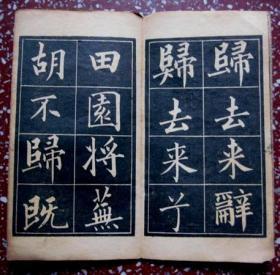 歸去来辭
歸去来兮
田園將蕪
胡不歸既